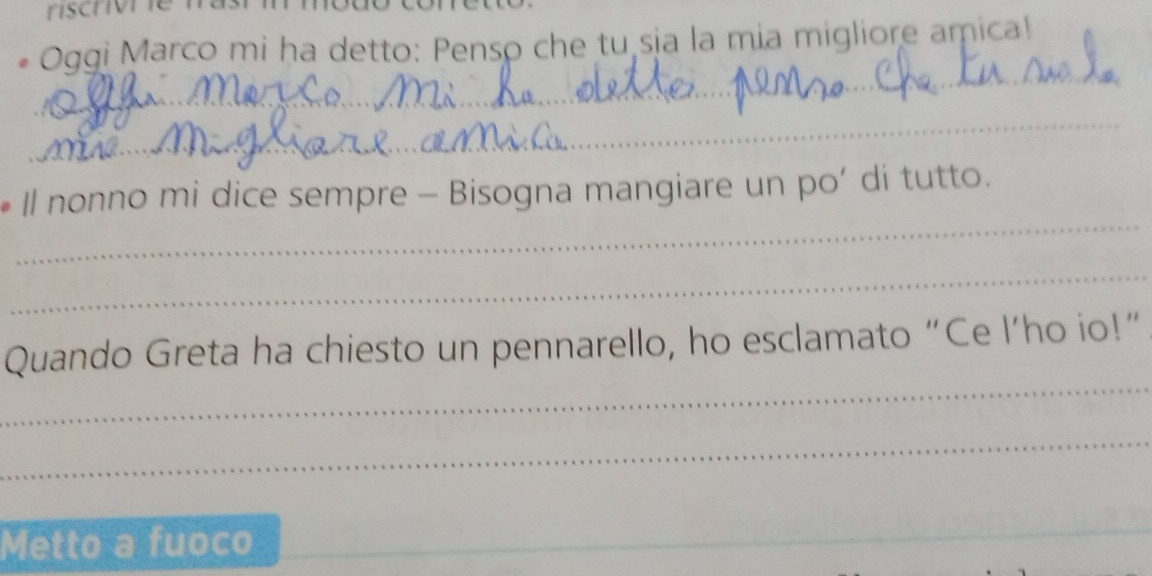 riscrivi le frasi in modo corretto.
• Oggi Marco mi ha detto: Penso che tu sia la mia migliore amica!
oggi Marco mi ha detto penso che tu sia la
mia migliore amica
• Il nonno mi dice sempre – Bisogna mangiare un po’ di tutto.
Quando Greta ha chiesto un pennarello, ho esclamato “Ce l’ho io!”
Metto a fuoco